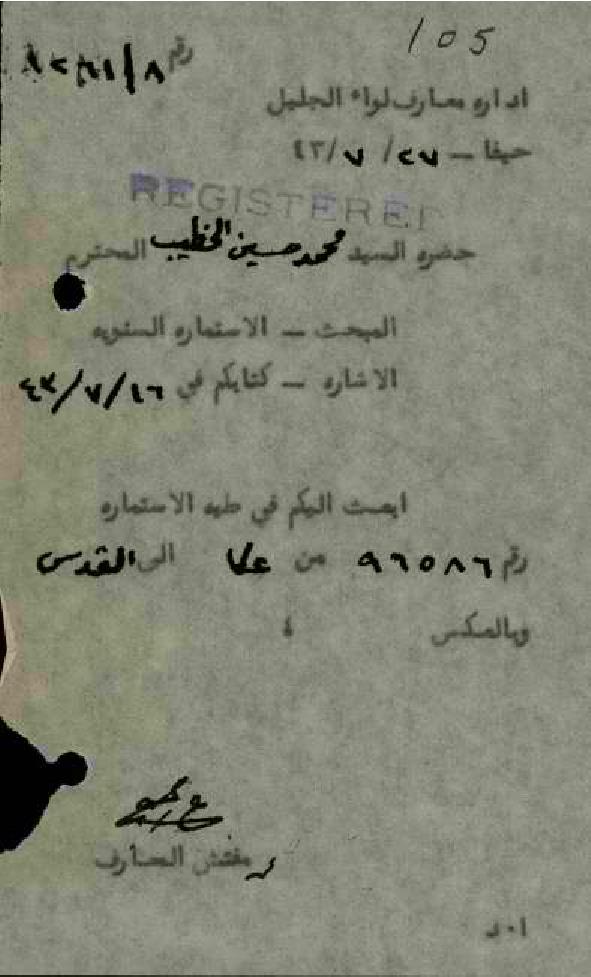 105
رقم
اداره معارف لواء الجليل
حيفا — ٢٧/ ٧/ ٤٣
REGISTERED
حضره السيد محمد حسين الخطيب المحترم
المبحث — الاستماره السنويه
الاشاره — كتابكم في ١٦/ ٧/ ٤٣
ابعث اليكم في طيه الاستماره
رقم ٩٦٥٨٦ من عكا الى القدس
وبالعكس ،
مفتش المعارف